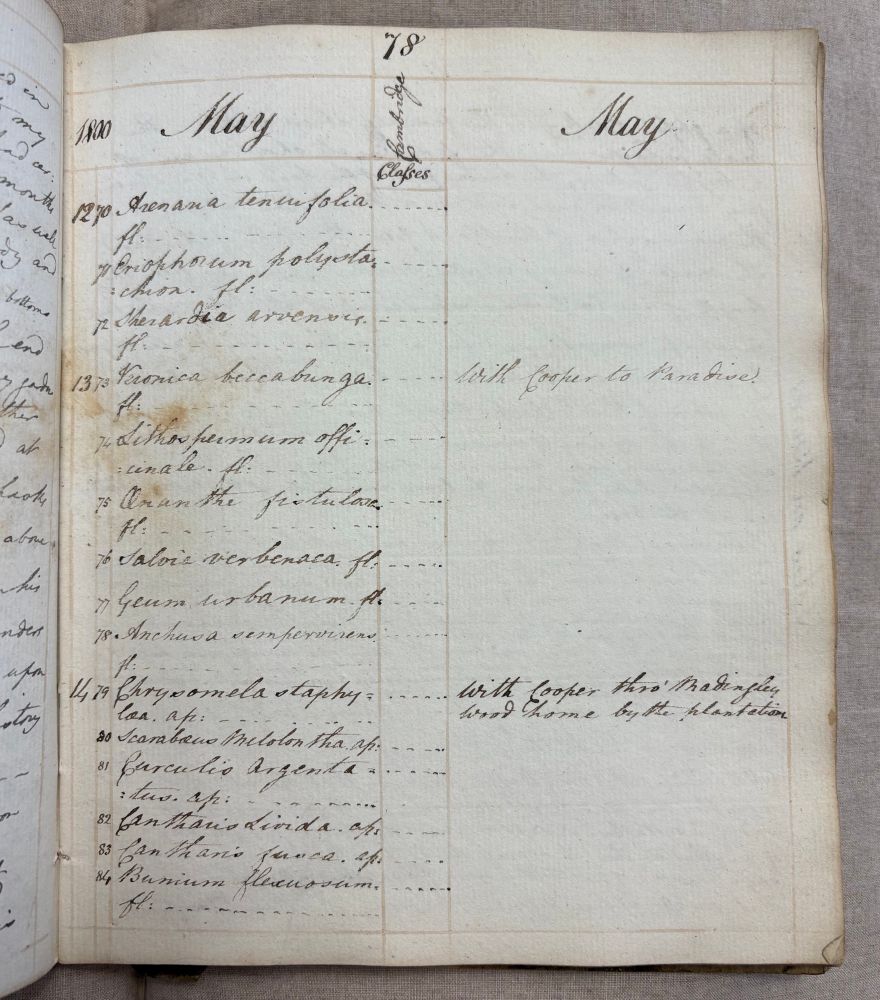 ed in
my
had
months
as well
and
bottoms
end
ther
at
above
his
nders
upon
story
is
78
1800 May
Cambridge
Classes
May
12 70 Arenaria tenuifolia.
fl:
71 Eriophorum polysta=
=chion. fl:
72 Sherardia arvensis.
fl:
13 73 Veronica beccabunga. With Cooper to Paradise.
fl:
74 Lithospermum offi=
=cinale. fl:
75 Œnanthe fistulosa.
fl:
76 Salvia verbenaca. fl:
77 Geum urbanum. fl:
78 Anchusa sempervirens
fl:
14 79 Chrysomela staphy= With Cooper thro' Madingley
læa. ap: wood home by the plantation
80 Scarabæus Melolontha. ap:
81 Curculio Argenta=
=tus. ap:
82 Cantharis Livida. ap:
83 Cantharis fusca. ap:
84 Bunium flexuosum.
fl: